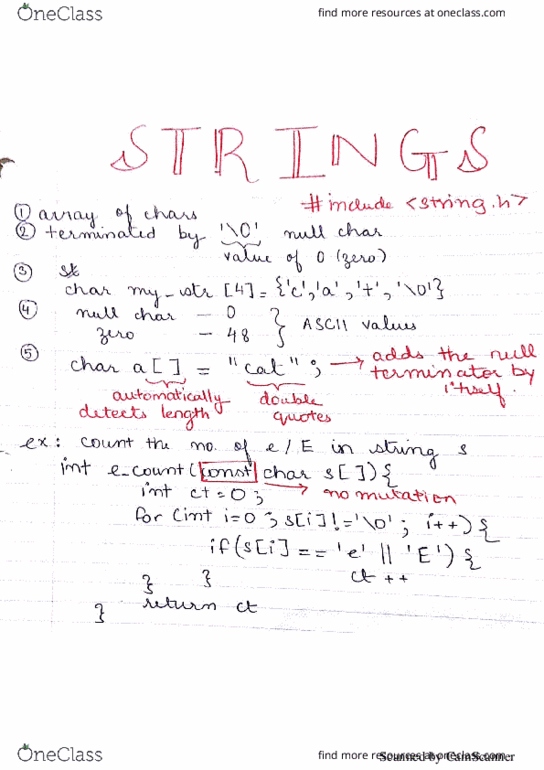 OneClass
find more resources at oneclass.com
STRINGS
# include <string.h>
① array of chars
② terminated by '\0' null char
value of 0 (zero)
③
char my_str [4] = {'c','a','t','\0'}
④ null char — 0
zero — 48 } ASCII values
⑤ char a[] = "cat" ; → adds the null terminator by itself.
automatically detects length
double quotes
ex: count the no. of e/E in string s
int e_count(const char s[]){
int ct = 0; → no mutation
for (int i=0 ; s[i]!='\0' ; i++) {
if (s[i] == 'e' || 'E') {
ct ++
} }
return ct
}
OneClass
find more resources at oneclass.com
Scanned by CamScanner